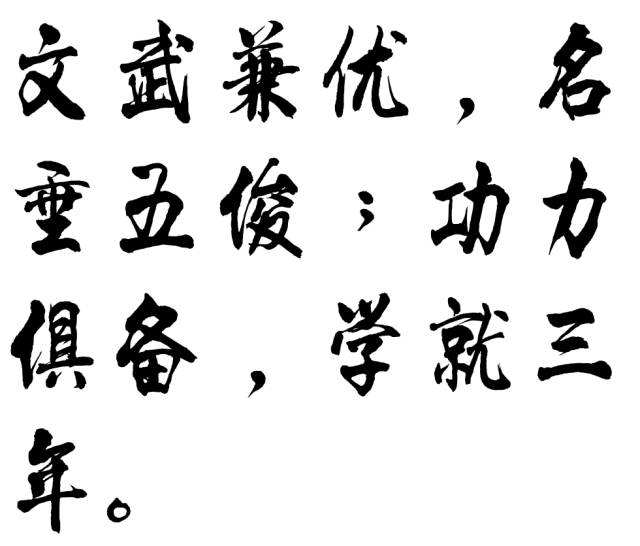 文武兼优，名
垂五俊；功力
俱备，学就三
年。